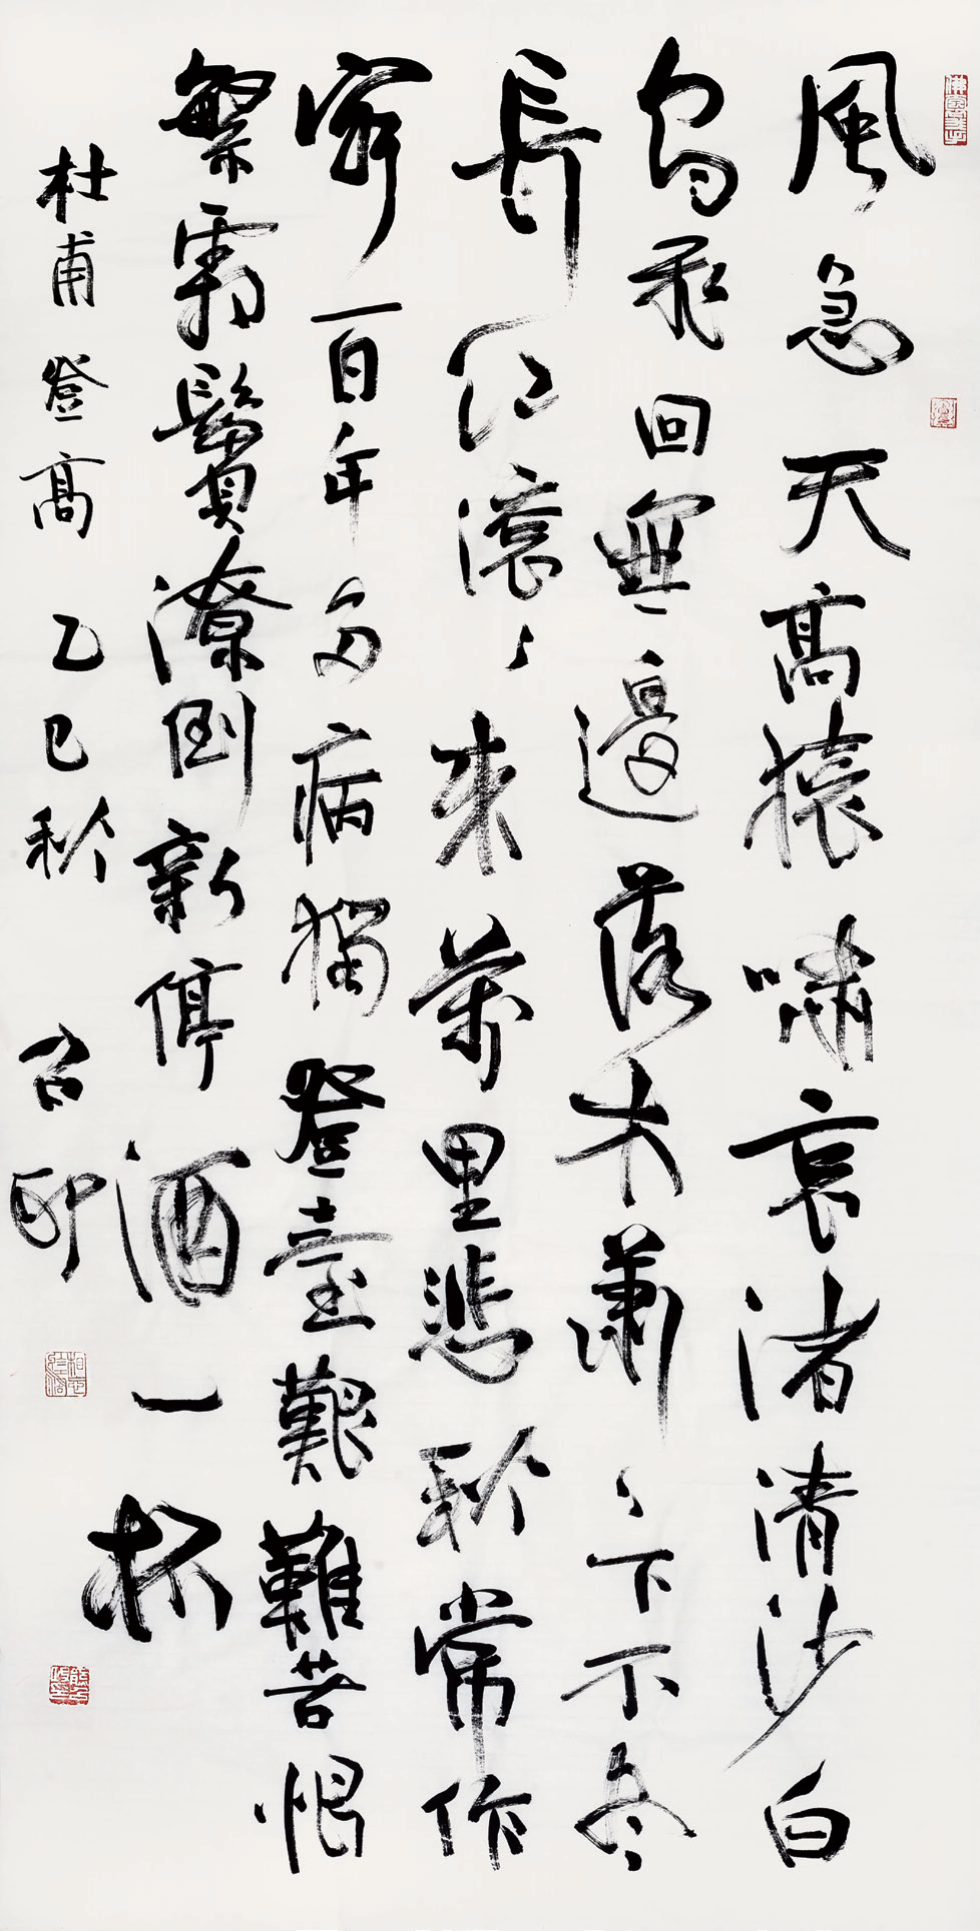 風急天高猿嘯哀渚清沙白
鳥飛回無邊落木蕭〻下不尽
長江滾〻來萬里悲秋常作
客百年多病獨登臺艱難苦恨
繁霜鬢潦倒新停酒一杯
杜甫登高乙巳秋